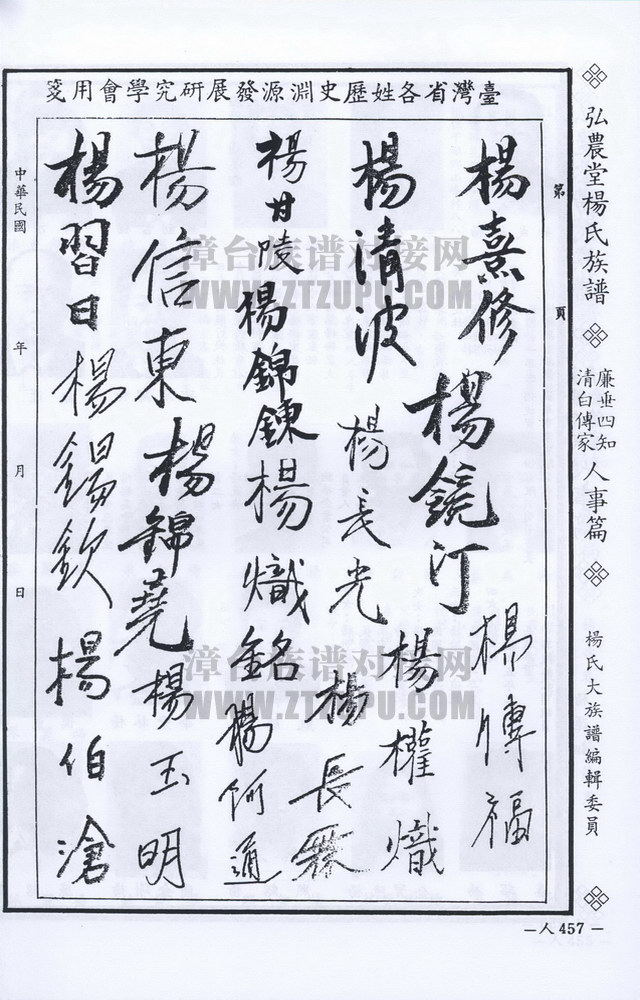 臺灣省各姓歷史淵源發展研究學會用箋
弘農堂楊氏族譜
廉垂四知
清白傳家
人事篇
楊氏大族譜編輯委員
第 頁
楊熹修 楊鏡汀 楊傳福
楊清波 楊長光 楊權熾
楊甘陵 楊錦鍊 楊熾銘 楊長 楊阿通
楊信東 楊錦堯 楊玉明
楊習日 楊錫欽 楊伯滄
中華民國 年 月 日
漳台族谱对接网
WWW.ZTZUPU.COM
漳台族谱对接网
WWW.ZTZUPU.COM
—人457—